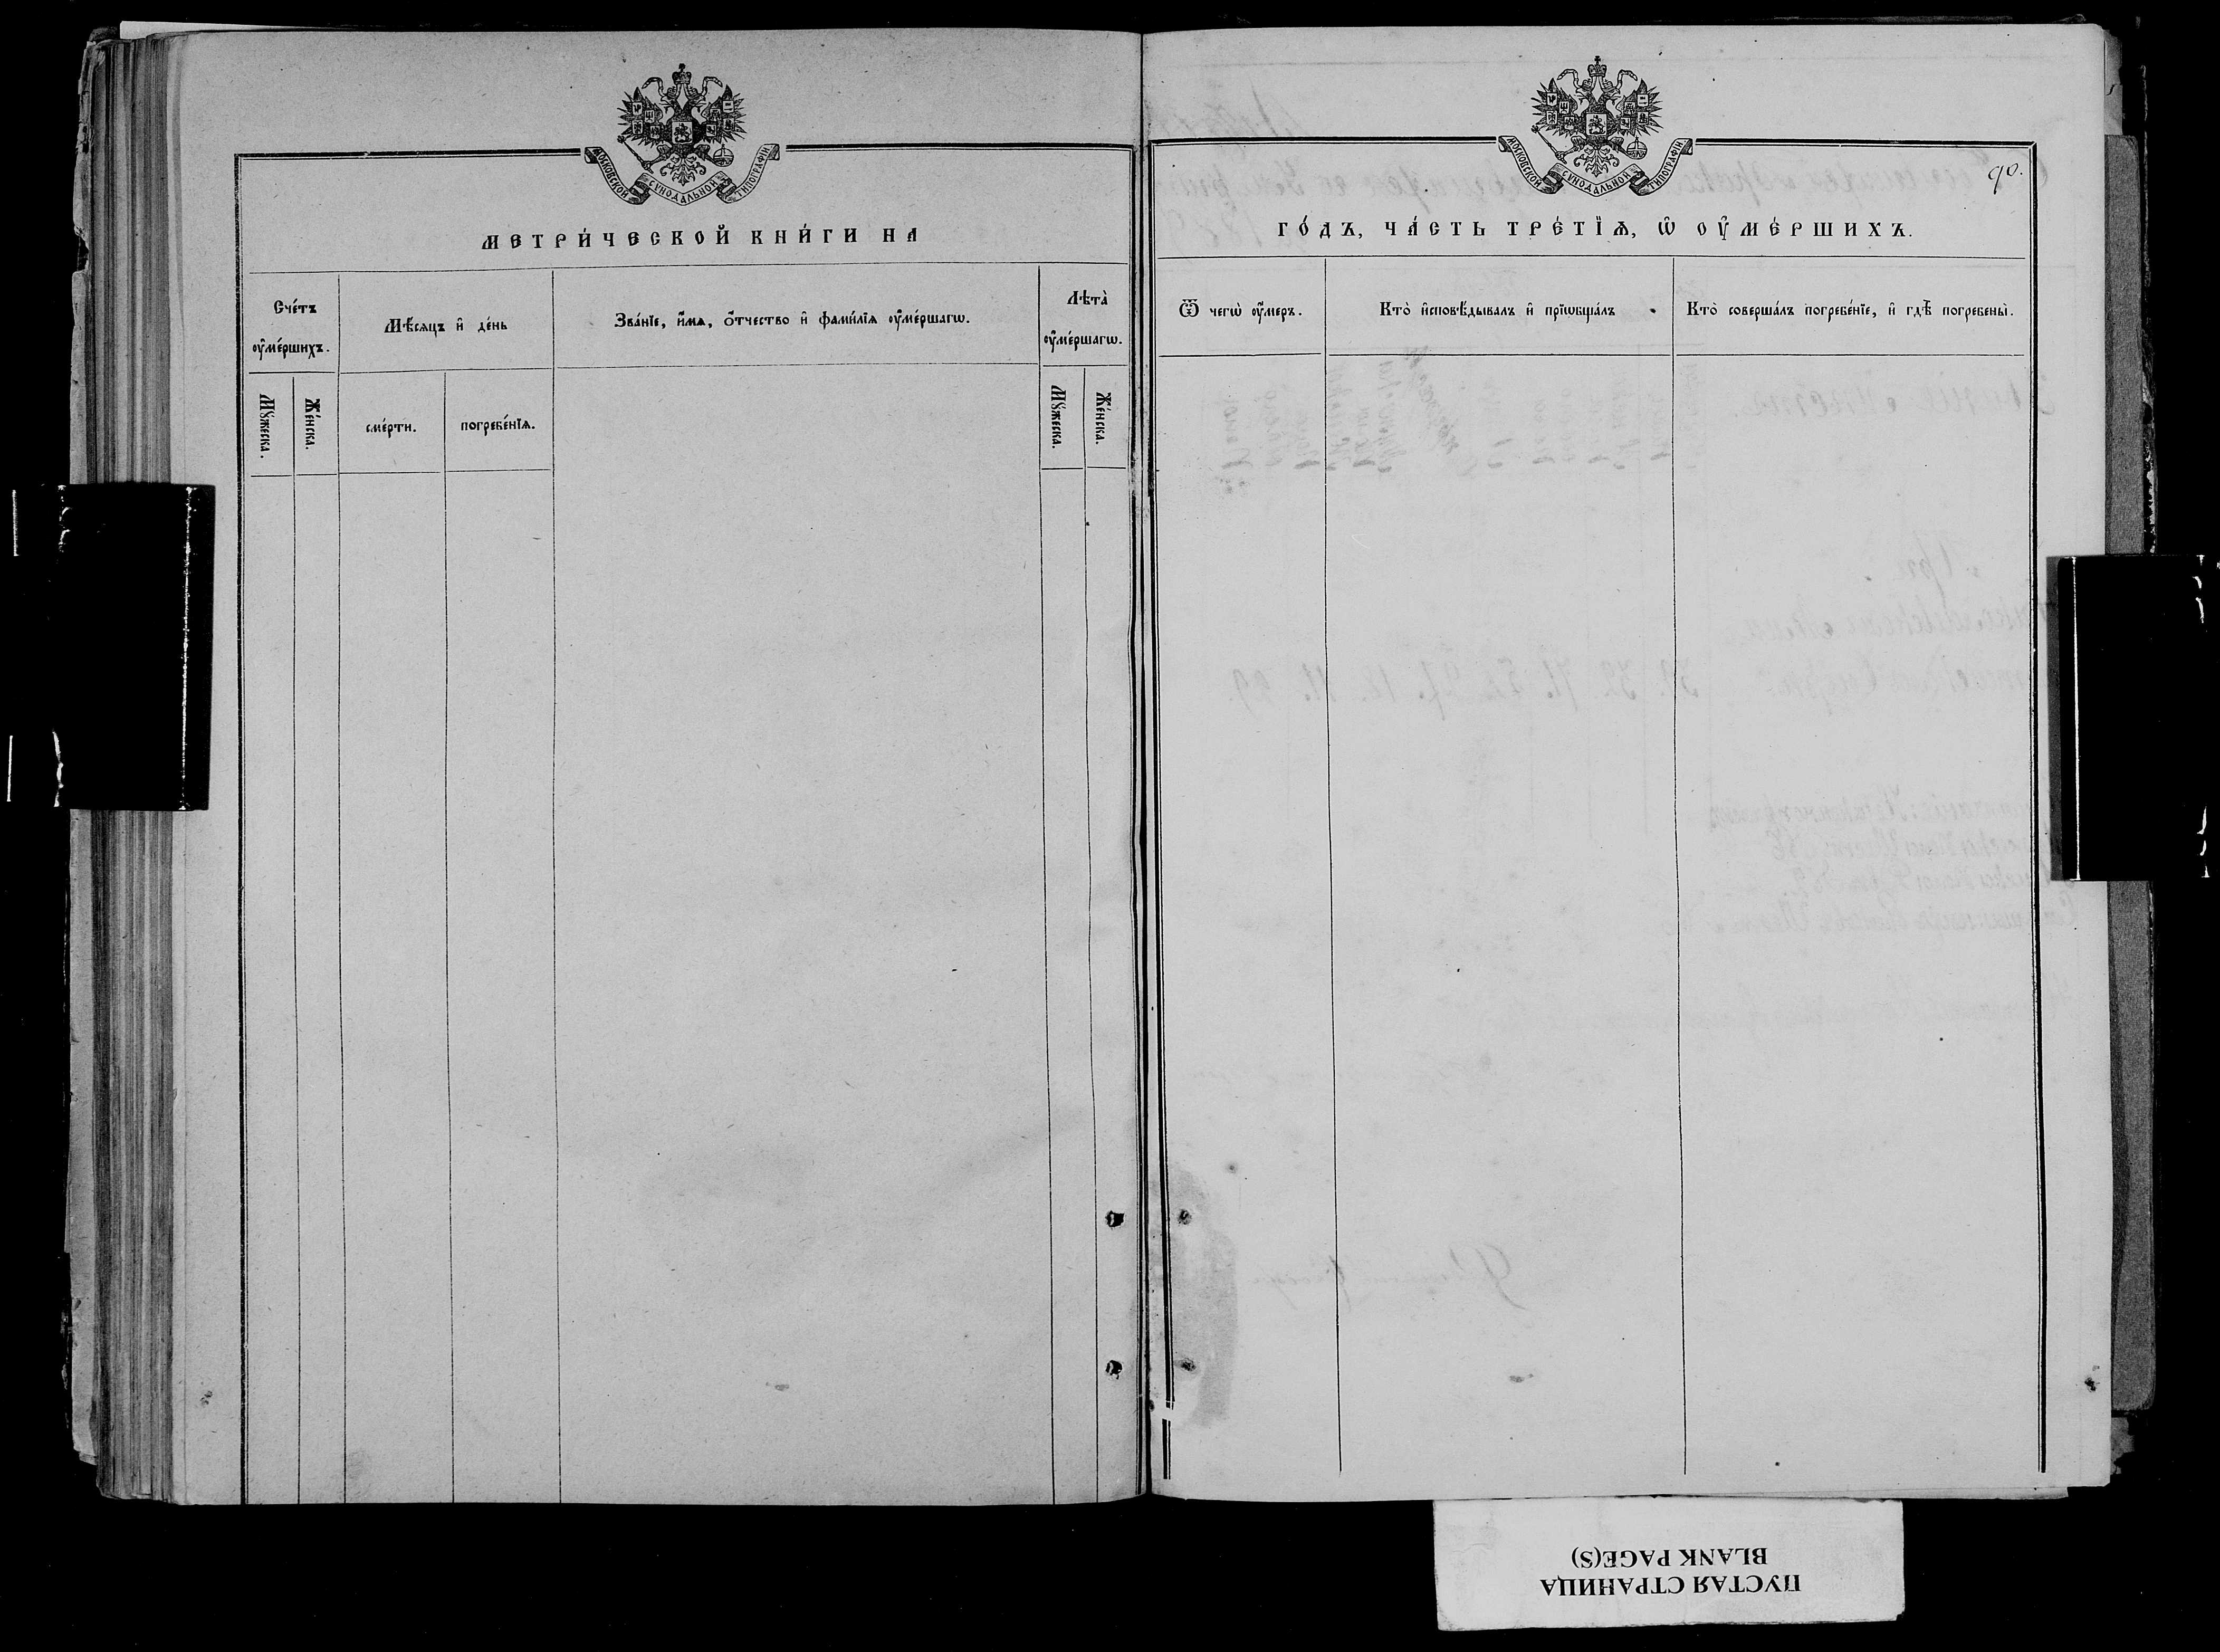 МОСКОВСКОЙ СУНОДАЛЬНОЙ ТИПОГРАФІИ
МЕТРИ́ЧЕСКОЙ КНИ́ГИ НА
Сче́тъ ᲂу҆ме́ршихъ.
Мѣ́сяцъ и҆ де́нь
Зва́нїе, и҆́мѧ, ѻ҆́тчество и҆ фами́лїѧ ᲂу҆ме́ршагѡ.
Лѣта̀ ᲂу҆ме́ршагѡ.
Мꙋ́жеска.
Же́нска.
сме́рти.
погребе́нїѧ.
Мꙋ́жеска.
Же́нска.
МОСКОВСКОЙ СУНОДАЛЬНОЙ ТИПОГРАФІИ
90.
ГО́ДЪ, ЧА́СТЬ ТРЕ́ТЇѦ, Ѡ҆ ОУ҆МЕ́РШИХЪ.
Ѿ чегѡ̀ ᲂу҆́меръ.
Кто̀ и҆сповѣ́дывалъ и҆ прїѡбща́лъ
Кто̀ соверша́лъ погребе́нїе, и҆ гдѣ̀ погребены̀.
ПУСТАЯ СТРАНИЦА
BLANK PAGE(S)